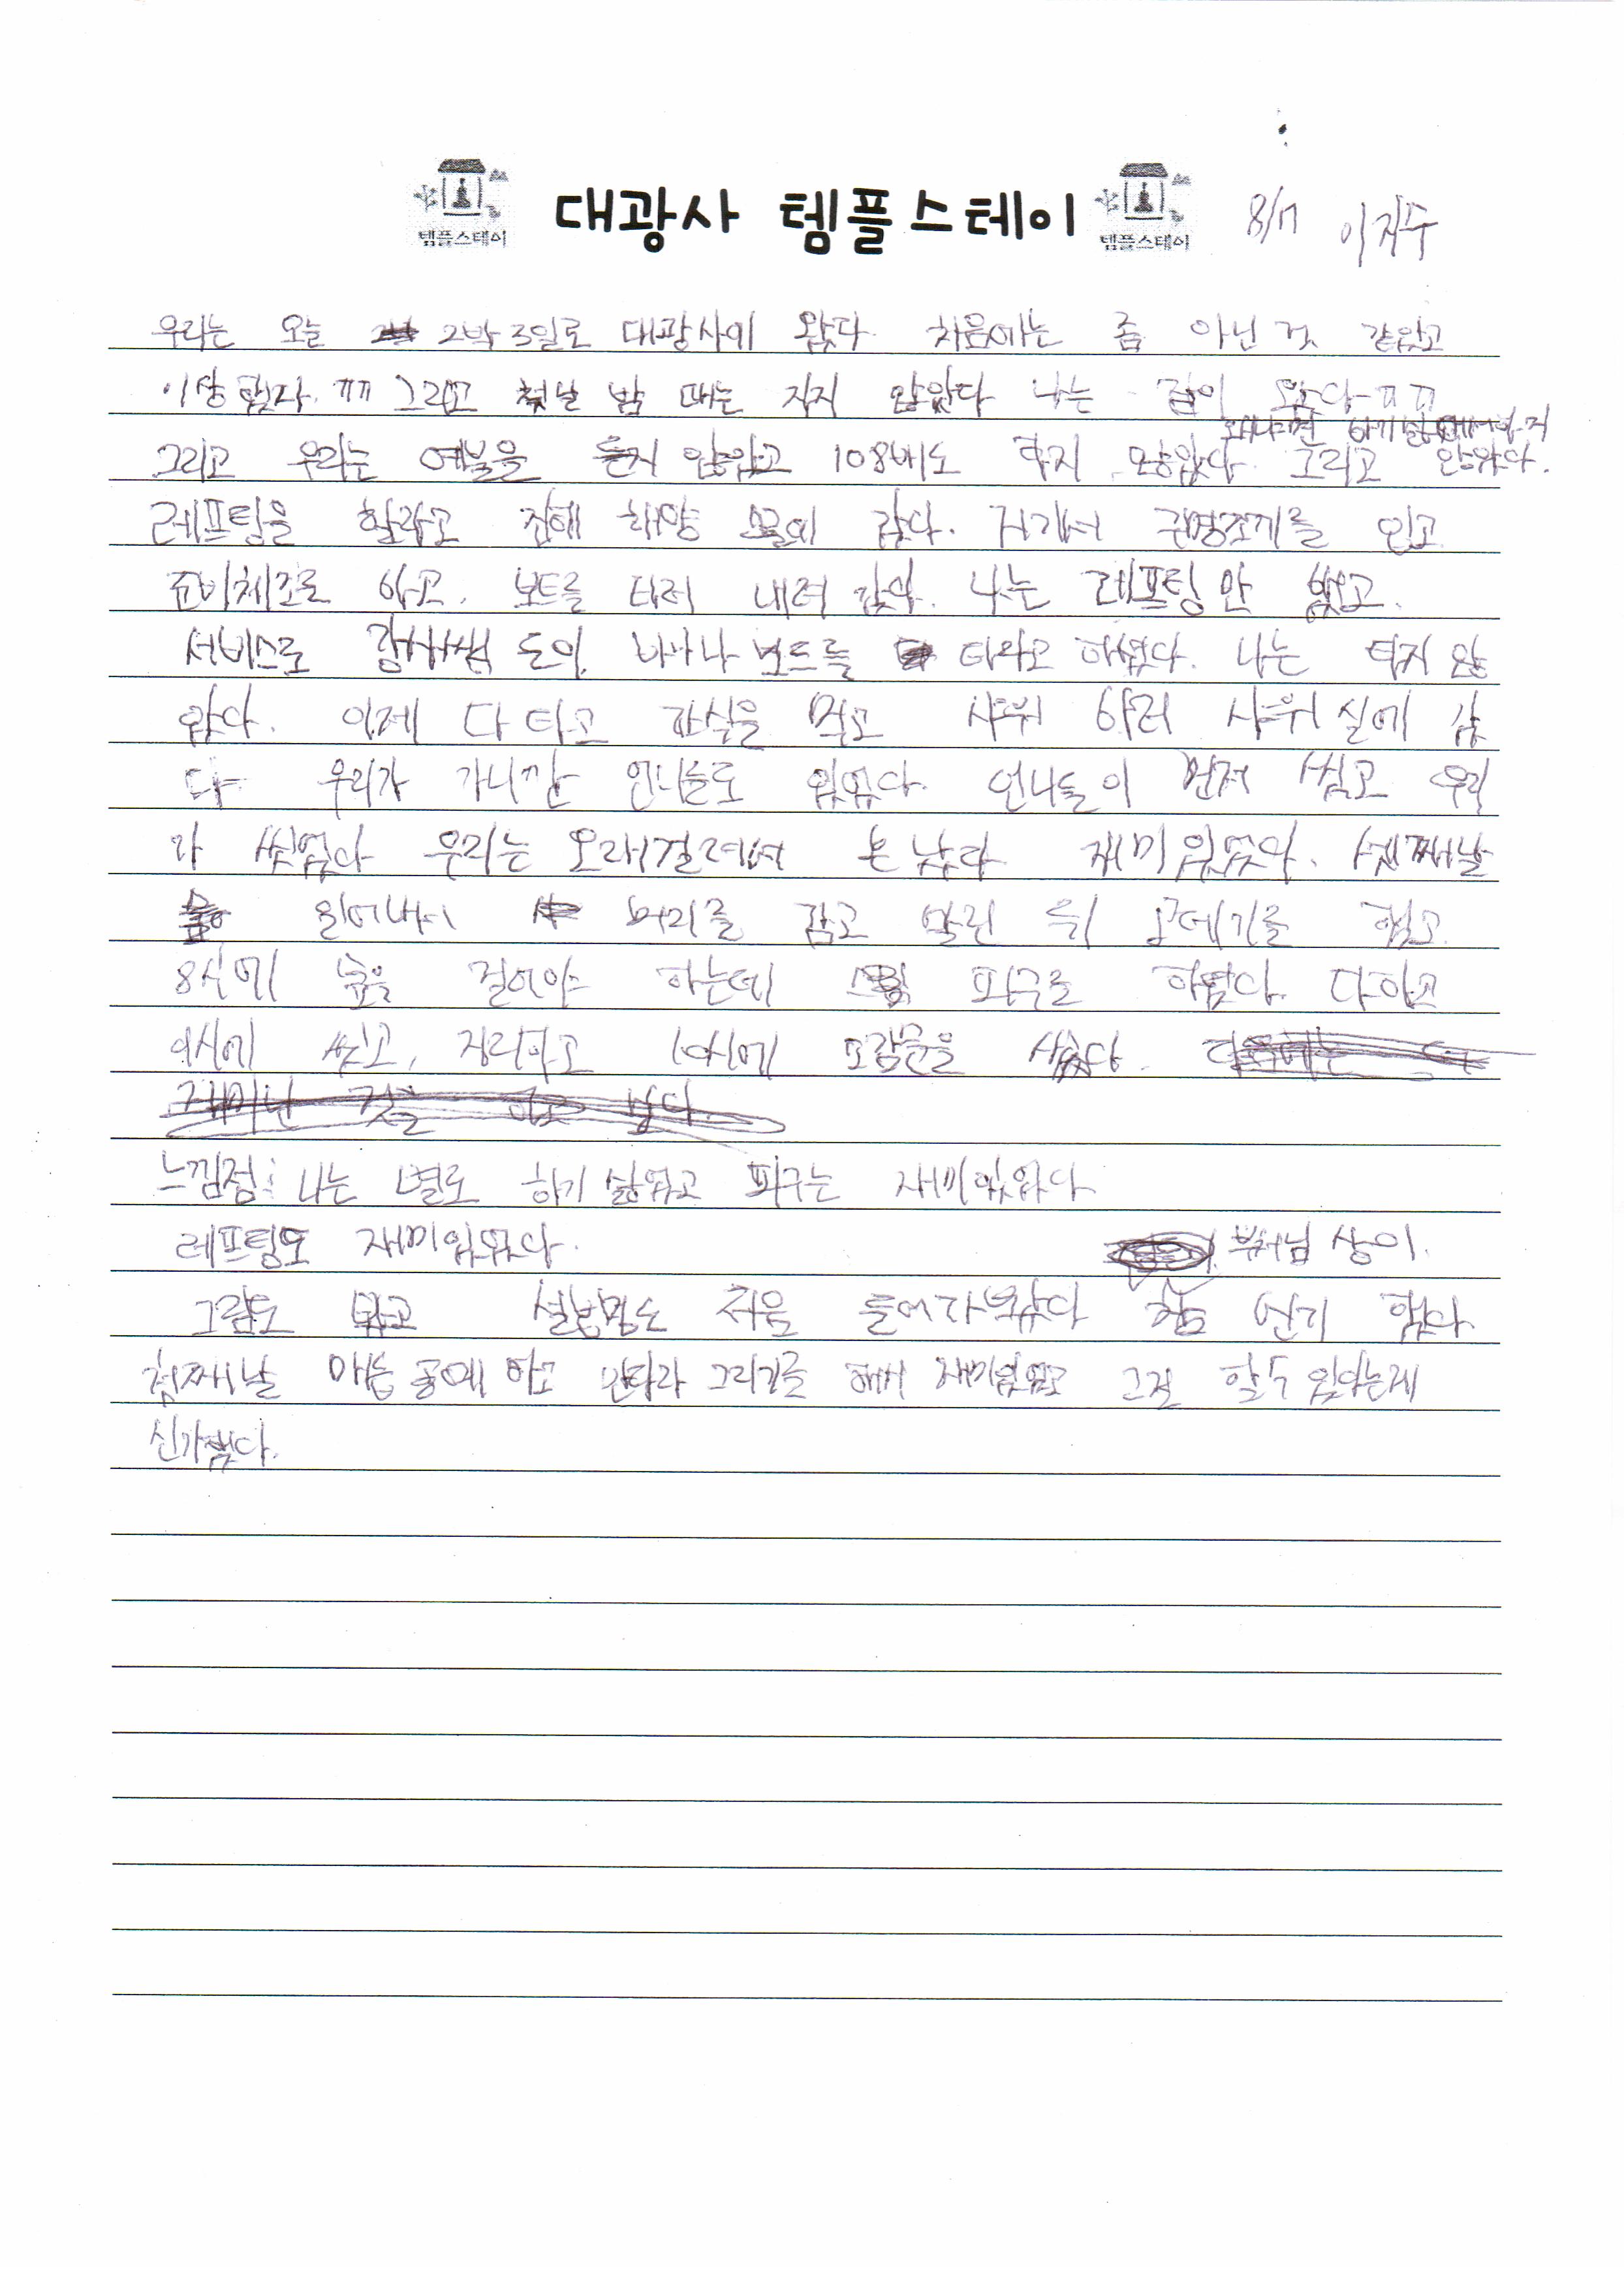 대광사 템플스테이
템플스테이
템플스테이
8/17 이지수
우리는 오늘 2박 3일로 대광사에 왔다. 처음에는 좀 아닌 것 같았고
이상했다. ㅠㅠ 그리고 첫날 밤 때는 자지 않았다 나는 잠이 왔다-ㅠㅠ
왜냐하면 하기싫어서 하지
그리고 우리는 예불을 듣지 않았고 108배도 하지 않았다. 그리고 않았다.
레프팅을 할라고 진해 해양 갔다. 거기서 구명조끼를 입고
준비체조를 하고. 보트를 타러 내려 갔다. 나는 레프팅 안 했고.
서비스로 바나나 보트를 타라고 하였다. 나는 타지 않
았다. 이제 다 타고 간식을 먹고 샤워 하러 샤워실에 갔
다. 우리가 가니깐 언니들도 있었다. 언니들이 먼저 씻고 우리
가 씻었다 우리는 오래걸려서 혼났다 재미있었다. 셋째날
일어나서 머리를 감고 말린 뒤 고데기를 했고.
8시에 숲을 걸어야 하는데 피구를 하였다. 다하고
9시에 씻고, 정리하고 10시에 소감문을 썼다.
느낌점: 나는 별로 하기 싫었고 피구는 재미있었다
레프팅도 재미있었다. 부처님 상이.
그림도 봤고 설법전도 처음 들어가보았다 참 신기 했다.
첫째날 매듭 공예 하고 만다라 그리기를 해서 재미있었고 그걸 할수 있다는게
신기했다.